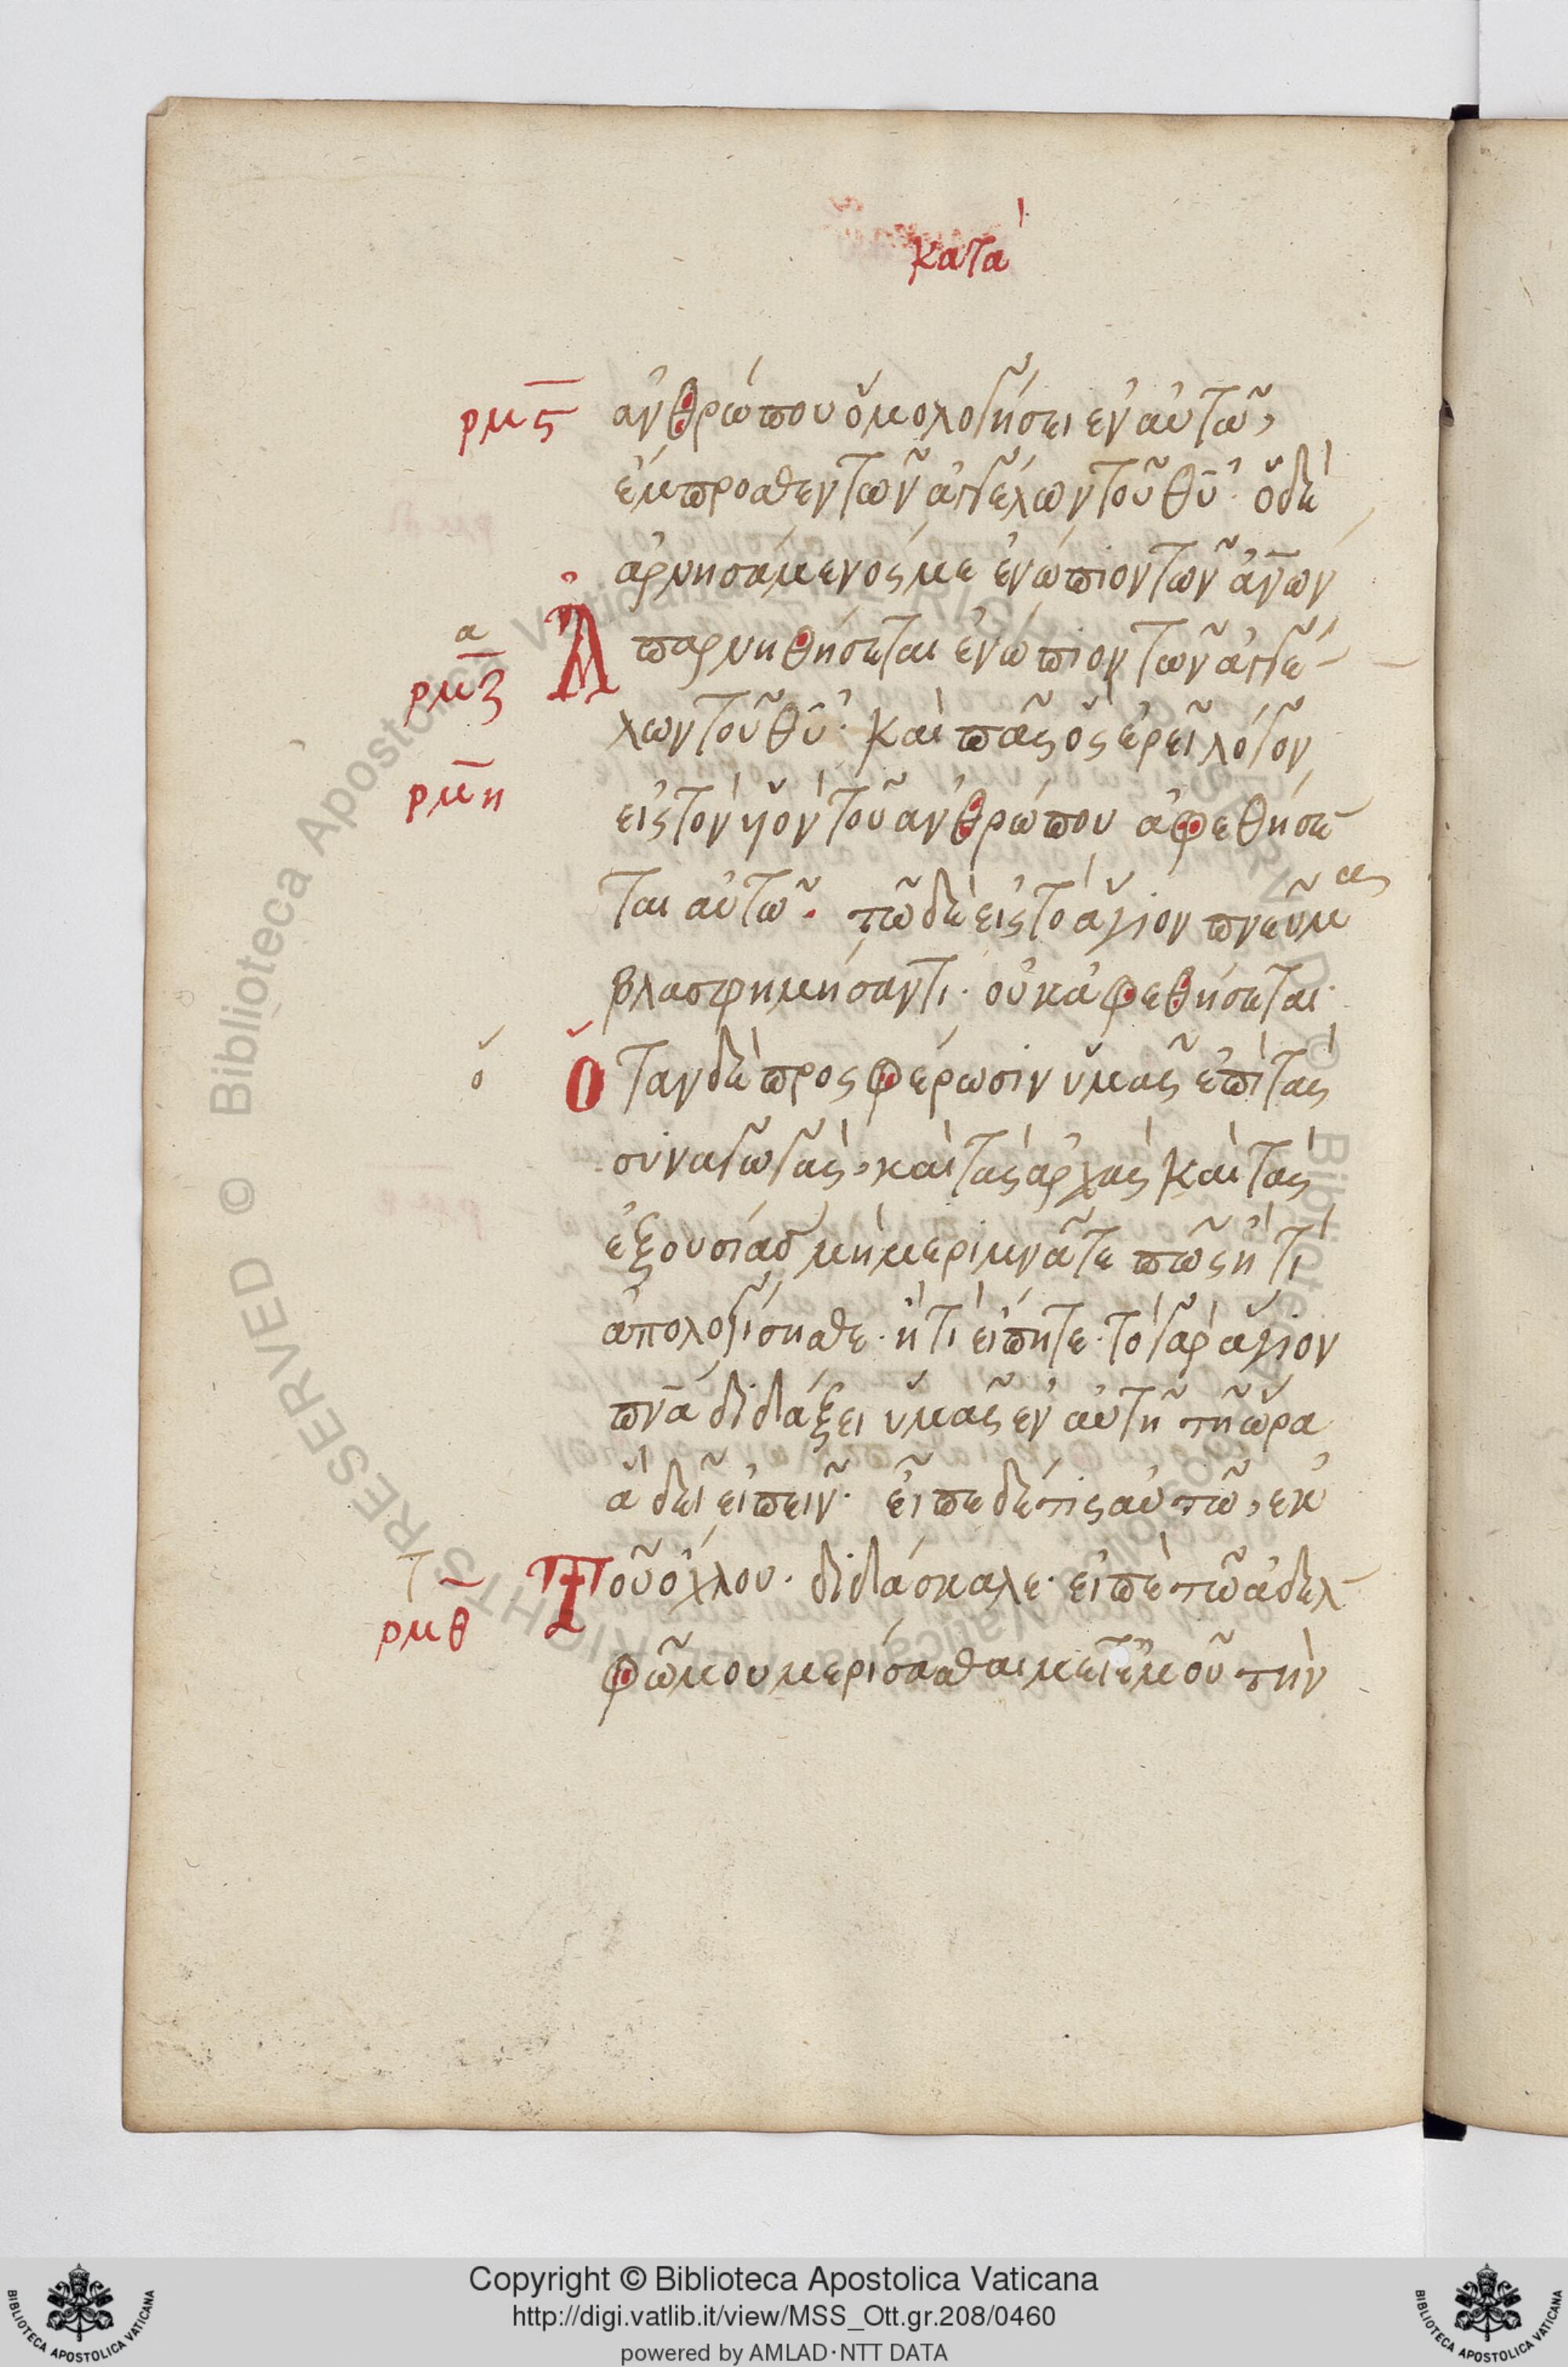 κατὰ
ρμϛ ἀνθρώπου ὁμολογήσει ἐν αὐτῶ,
ἔμπροσθεν τῶν ἀγγέλων τοῦ θῦ· ὁ δὲ
ἀρνησάμενός με ἐνώπιον τῶν ἀνων
α
ρμζ Ἀπαρνηθήσεται ἐνώπιον τῶν ἀγγέ-
λων τοῦ θῦ· καὶ πᾶς ὃς ἐρεῖ λόγον
ρμη εἰς τὸν ϋὸν τοῦ ἀνθρώπου ἀφεθήσε-
ται αὐτῶ. τῶ δὲ εἰς τὸ ἅγιον πνεῦμα
βλασφημήσαντι· οὐκ ἀφεθήσεται·
ο Ὅταν δὲ προςφέρωσιν ὑμᾶς ἐπὶ τὰς
συναγωγὰς, καὶ τὰς ἀρχὰς καὶ τὰς
ἐξουσίας μὴ μεριμνᾶτε πῶς ἢ τί
ἀπολογίσησθε· ἢ τί εἴπητε· τὸ γὰρ ἅγιον
πνα διδάξει ὑμᾶς ἐν αὐτῆ τῆ ὥρα
ἃ δεῖ εἰπεῖν· εἶπε δέ τις αὐτῶ, ἐκ
τ
ρμθ Τοῦ ὄχλου· διδάσκαλε· εἰπὲ τῶ ἀδελ-
φῶ μου μερίσασθαι μετ ἐμοῦ τὴν
Copyright © Biblioteca Apostolica Vaticana
http://digi.vatlib.it/view/MSS_Ott.gr.208/0460
powered by AMLAD·NTT DATA